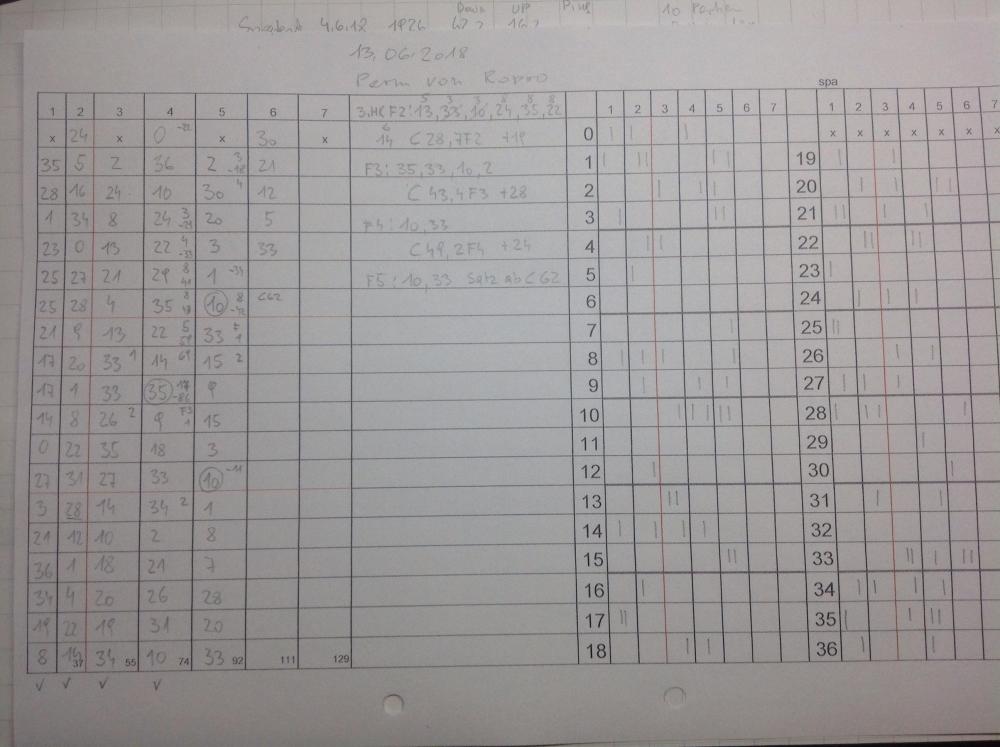 Down UP Plus 10 Partien
4.6.18 1926
13.06.2018
Perm von Ropro
spa
1 2 3 4 5 6 7 3.H(F2:13,33,10,24,35,22 1 2 3 4 5 6 7 1 2 3 4 5 6 7
x 24 x 0 x 30 x 14 C28,7F2 +19 0 x x x x x x x
35 5 2 36 2 21 F3:35,33,10,2 1 19
28 16 24 10 30 4 12 C43,4F3 +28 2 20
1 34 8 24 20 5 F4:10,33 3 21
23 0 13 22 3 33 C49,2F4 +24 4 22
25 27 21 29 1 -34 F5:10,33 Satz ab C62 5 23
25 28 4 35 10 C62 6 24
21 9 13 22 33 7 25
17 20 33 1 14 69 15 2 8 26
17 1 33 35 9 9 27
14 8 26 2 9 F3 1 15 10 28
0 22 35 18 3 11 29
27 31 27 33 10 -11 12 30
3 28 14 34 2 1 13 31
21 12 10 2 8 14 32
36 1 18 21 7 15 33
34 4 20 26 28 16 34
19 22 19 31 20 17 35
8 14 37 34 55 10 74 33 92 111 129 18 36